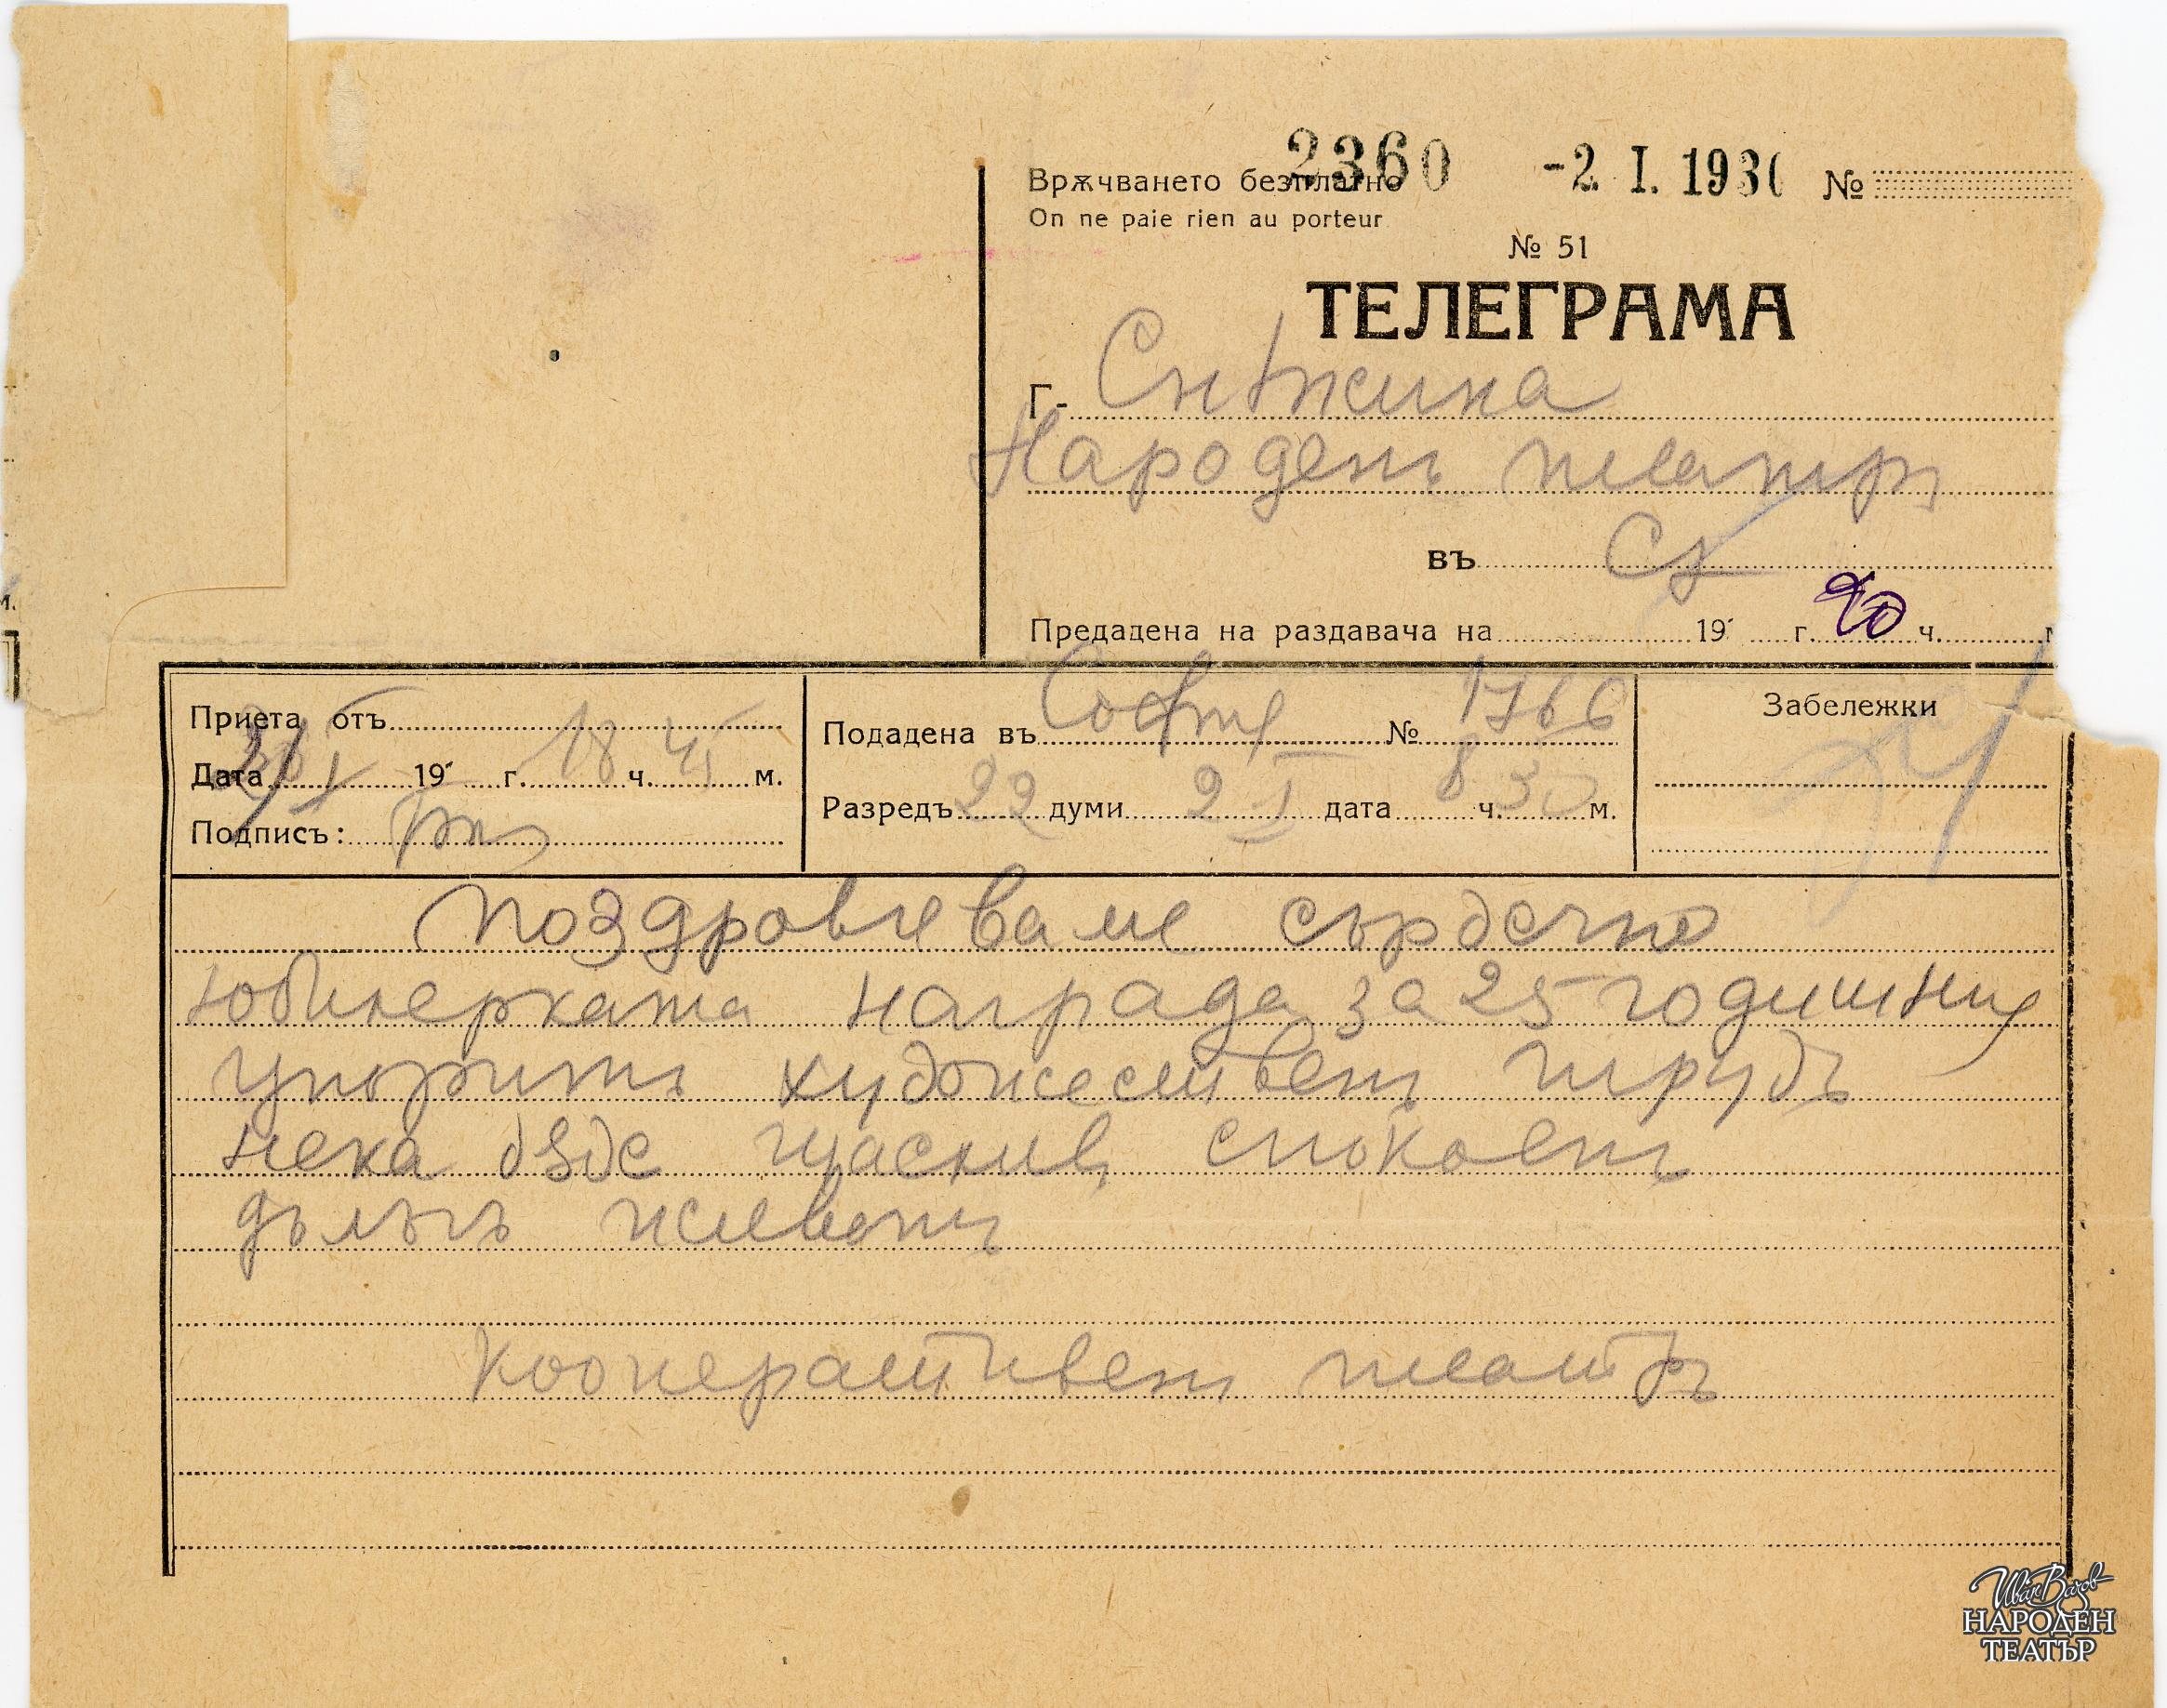 2360 -2 I. 193
Врѫчването безплатно
On ne paie rien au porteur
№
№ 51
ТЕЛЕГРАМА
Г- Снѣжина
Народенъ театръ
въ Сф
Предадена на раздавача на 19 г. ч.
Приета отъ
Дата 19 г. 18 ч. 45 м.
Подписъ:
Подадена въ София № 1766
Разредъ 22 думи 2 I дата 8 ч. 30 м.
Забележки
Поздравяваме сърдечно
юбилерката награда за 25 годишния
упоритъ художественъ трудъ
нека бѫде щасливъ спокоенъ
дълъгъ животъ
Кооперативенъ театъръ
Иван Вазов
НАРОДЕН
ТЕАТЪР